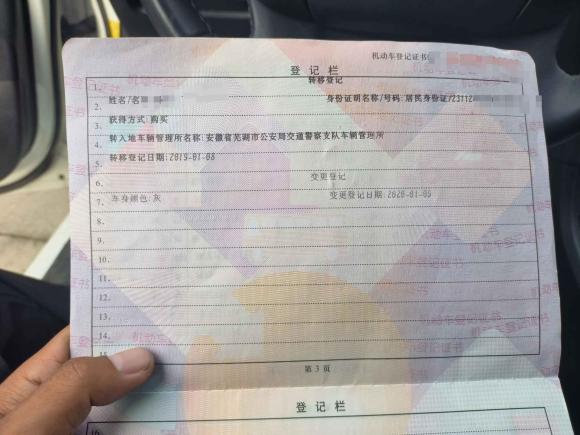 机动车登记证书
登记栏
1. 转移登记
2. 姓名/名 身份证明名称/号码:居民身份证/23112
3. 获得方式:购买
4. 转入地车辆管理所名称:安徽省芜湖市公安局交通警察支队车辆管理所
5. 转移登记日期:2019-01-08
6. 变更登记
7. 车身颜色:灰 变更登记日期:2020-01-09
8.
9.
10.
11.
12.
13.
14.
15
第3页
登记栏